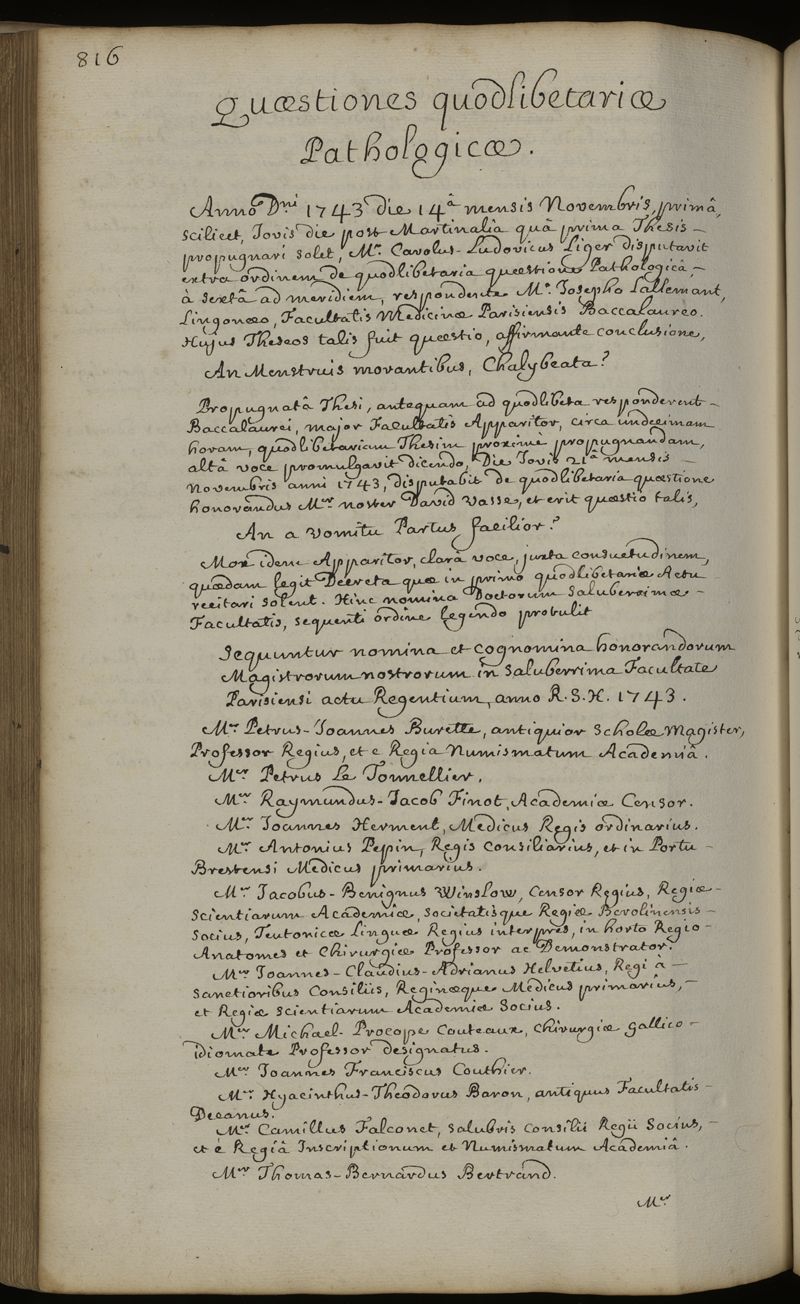 816
Quæstiones quodlibetariæ
Pathologicæ.
Anno Dni 1743 die 14â mensis Novembris, primâ,
scilicet, Jovis die post Martinalia quâ prima Thesis –
propugnari solet, Mr. Carolus-Ludovicus Liger disputavit
extra ordinem de quodlibetaria quæstione Pathologicâ, –
à sextâ ad meridiem, respondente Mo. Josepho Lallemant,
Lingonæo, Facultatis Medicinæ Parisiensis Baccalaureo.
Hujus Theseos talis fuit quæstio, affirmante conclusione,
An Menstruis morantibus, Chalybeata?
Propugnatâ Thesi, antequam ad quodlibeta responderent –
Baccalaurei, major Facultatis Apparitor, circa undecimam
horam, quodlibetariam Thesim proximè propugnandam,
altâ voce promulgavit dicendo, Die Jovis 21â mensis –
Novembris anni 1743, disputabit de quodlibetaria quæstione
honorandus Mer noster David Vasse, et erit quæstio talis,
An a vomitu Partus facilior?
Mox idem Apparitor, clarâ voce, juxta consuetudinem,
quædam legit Decreta quæ in primo quodlibetariæ Actu
recitari solent. Hinc nomina Doctorum saluberrimæ –
Facultatis, sequenti ordine legendo protulit
Sequuntur nomina et cognomina honorandorum
Magistrorum nostrorum in saluberrima Facultate
Parisiensi actu Regentium, anno R. S. H. 1743.
Mer Petrus-Joannes Burette, antiquior scholæ Magister,
Professor Regius, et e Regia Numismatum Academiâ.
Mer Petrus Le Tonnellier.
Mer Raymundus-Jacob Finot, Academiæ Censor.
Mer Joannes Herment, Medicus Regis ordinarius.
Mer Antonius Pepin, Regis Consiliarius, et in Portu –
Brestensi Medicus primarius.
Mer Jacobus-Benignus Winslow, Censor Regius, Regiæ –
Scientiarum Academiæ, societatisque Regiæ Berolinensis –
Socius, Teutonicæ Linguæ Regius interpres, in horto Regio –
Anatomes et Chirurgiæ Professor ac Demonstrator.
Mer Joannes-Claudius-Adrianus Helvetius, Regi à –
Sanctioribus Consiliis, Reginæque Medicus primarius, –
et Regiæ Scientiarum Academiæ Socius.
Mer Michael-Procope Couteaux, Chirurgiæ gallico –
idiomate Professor designatus.
Mer Joannes Franciscus Couthier.
Mer Hyacinthus-Theodorus Baron, antiquus Facultatis –
Decanus.
Mer Camillus Falconet, salubris Consilii Regii Socius, –
et è Regiâ Inscriptionum et Numismatum Academiâ.
Mer Thomas-Bernardus Bertrand.
Mer